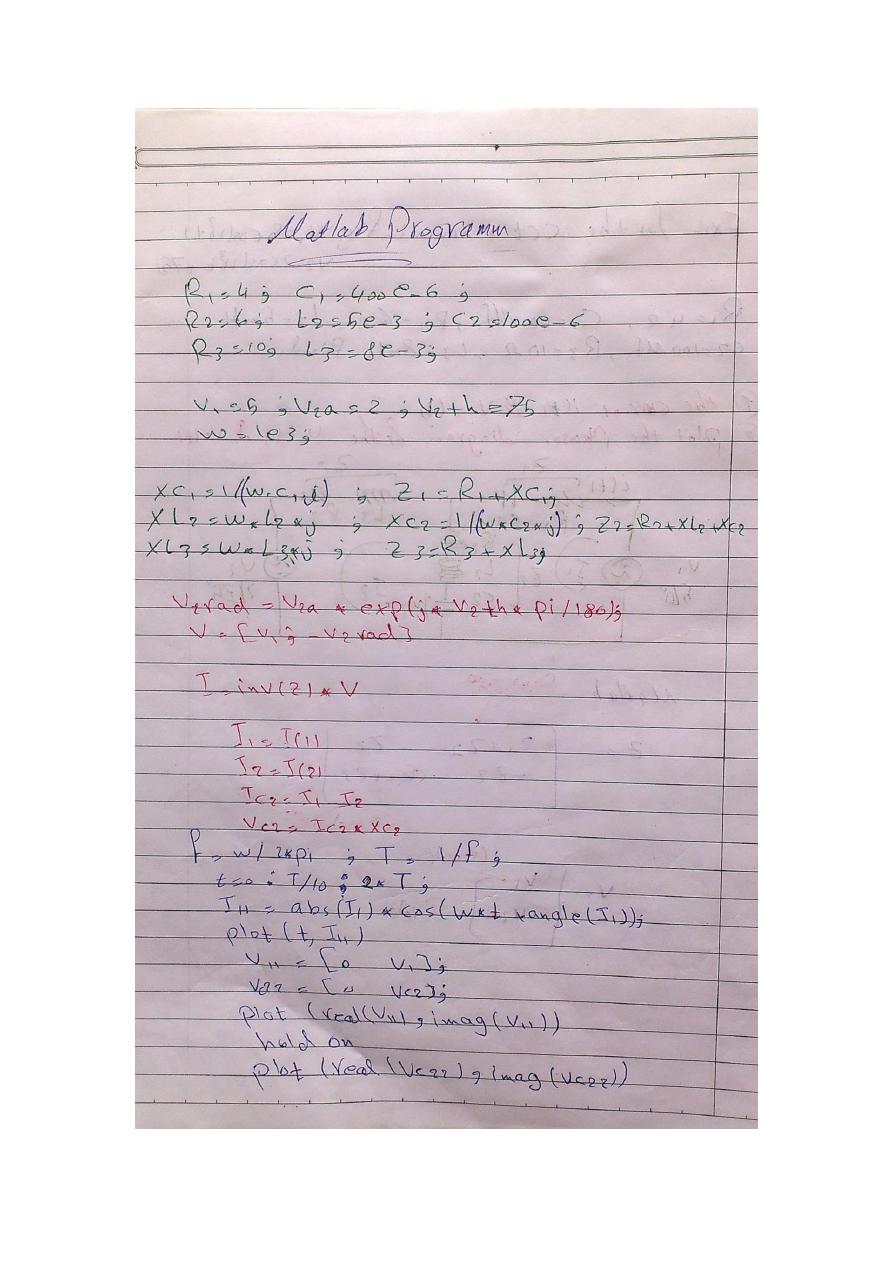 Matlab Programm
R1=4; C1=400e-6;
R2=6; L2=5e-3; C2=100e-6
R3=10; L3=8e-3;
V1=5; V2a=2; V2th=75
w=1e3;
XC1=1/(w*C1*j); Z1=R1+XC1;
XL2=w*L2*j; XC2=1/(w*C2*j); Z2=R2+XL2+XC2
XL3=w*L3*j; Z3=R3+XL3;
V2rad = V2a * exp(j* V2th* pi/180);
V=[V1; -V2rad]
I=inv(Z)*V
I1=I(1)
I2=I(2)
IC2=I1 I2
VC2=IC2*XC2
f=w/2*pi; T=1/f;
t=0:T/10:2*T;
I11=abs(I1)*cos(w*t+angle(I1));
plot(t,I11)
V11=[0 V1];
V22=[0 VC2];
plot(real(V11),imag(V11))
hold on
plot(real(VC22),imag(VC22))